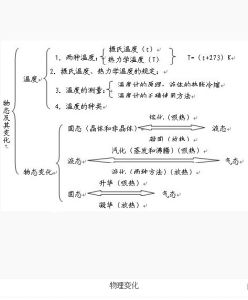 1、两种温度：
摄氏温度（t）
热力学温度（T）
T=（t+273）K
温度
2、摄氏温度、热力学温度的规定：
3、温度的测量：
温度计的原理：液体的热胀冷缩
温度计的正确使用方法
4、温度的种类
物态及其变化
熔化（吸热）
固态（晶体和非晶体）
液态
凝固（放热）
汽化（蒸发和沸腾）（吸热）
物态变化
液态
气态
液化（两种方法）（放热）
升华（吸热）
固态
气态
凝华（放热）
物理变化